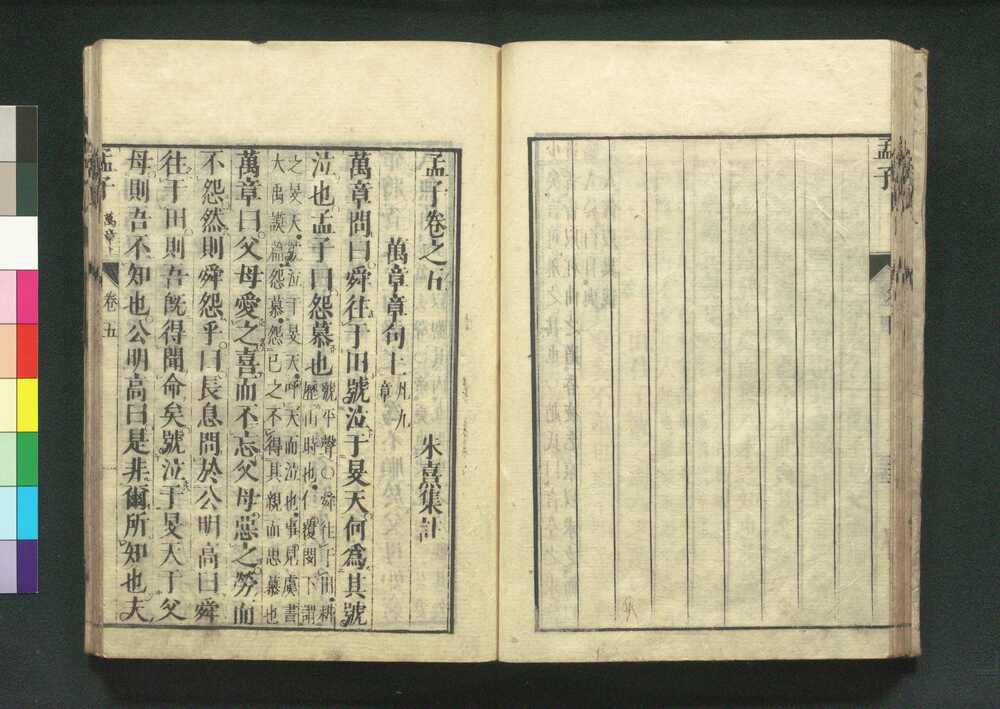 孟子
孟子卷之五
萬章章句上 凡九章
朱熹集註
萬章問曰舜往于田號泣于旻天何爲其號
泣也孟子曰怨慕也
號平聲○舜往于田耕
歷山時也仁覆閔下謂
之旻天號泣于旻天呼天而泣也事見虞書
大禹謨篇怨慕怨己之不得其親而思慕也
萬章曰父母愛之喜而不忘父母惡之勞而
不怨然則舜怨乎曰長息問於公明高曰舜
往于田則吾旣得聞命矣號泣于旻天于父
母則吾不知也公明高曰是非爾所知也夫
孟子 萬章 卷五